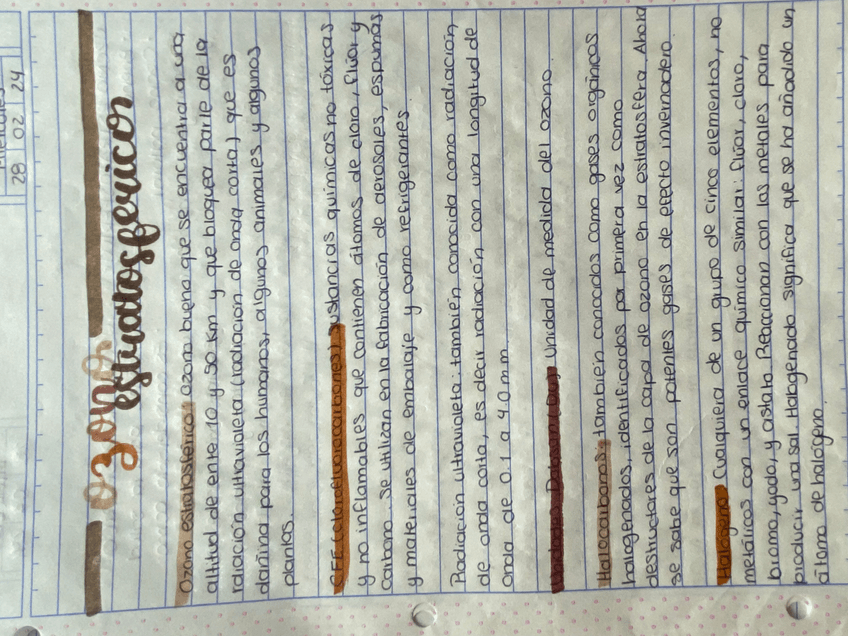 Miércoles
28 02 24
Ozono
estratosférico
Ozono estratosférico: Ozono bueno que se encuentra a una
altitud de ente 10 y 50 km y que bloquea parte de la
raiación ultravioleta (radiación de onda corta) que es
dañina para los humanos, algunos animales y algunas
plantas.
CFE (clorofluorocarbonos): sustancias químicas no tóxicas
y no inflamables que contienen átomos de cloro, flúor y
carbono. Se utilizan en la fabricación de aerosoles, espumas
y materiales de embalaje y como refrigerantes.
Radiación ultravioleta: también conocida como radiación
de onda corta, es decir radiación con una longitud de
onda de 0.1 a 4.0 mm
Unidades Dobson (Du): Unidad de medida del ozono.
Halocarbonos: también conocidos como gases orgánicos
halogenados, identificados por primera vez como
destructores de la capa de ozono en la estratosfera. Ahora
se sabe que son potentes gases de efecto invernadero.
Halógeno: Cualquiera de un grupo de cinco elementos, no
metálicos con un enlace químico similar: flúor, cloro,
bromo, yodo, y astato. Reaccionan con los metales para
producir una sal. Halogenado significa que se ha añadido un
átomo de halógeno.